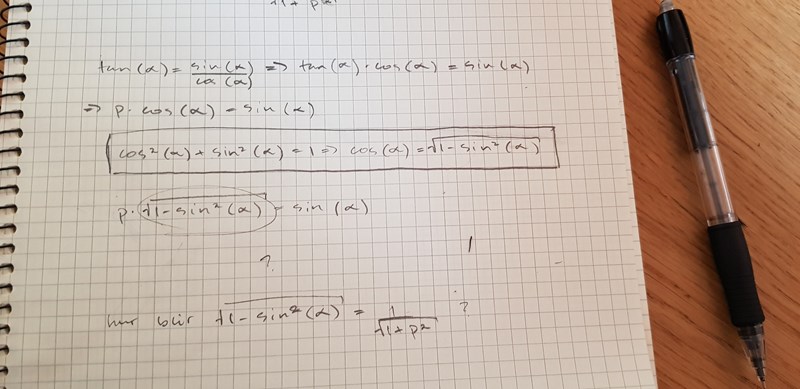 √1+p²
tan(α) = sin(α)/cos(α) => tan(α)·cos(α) = sin(α)
=> p·cos(α) = sin(α)
cos²(α) + sin²(α) = 1 => cos(α) = √1-sin²(α)
p·√1-sin²(α) = sin(α)
?
hur blir √1-sin²(α) = 1/√1+p² ?